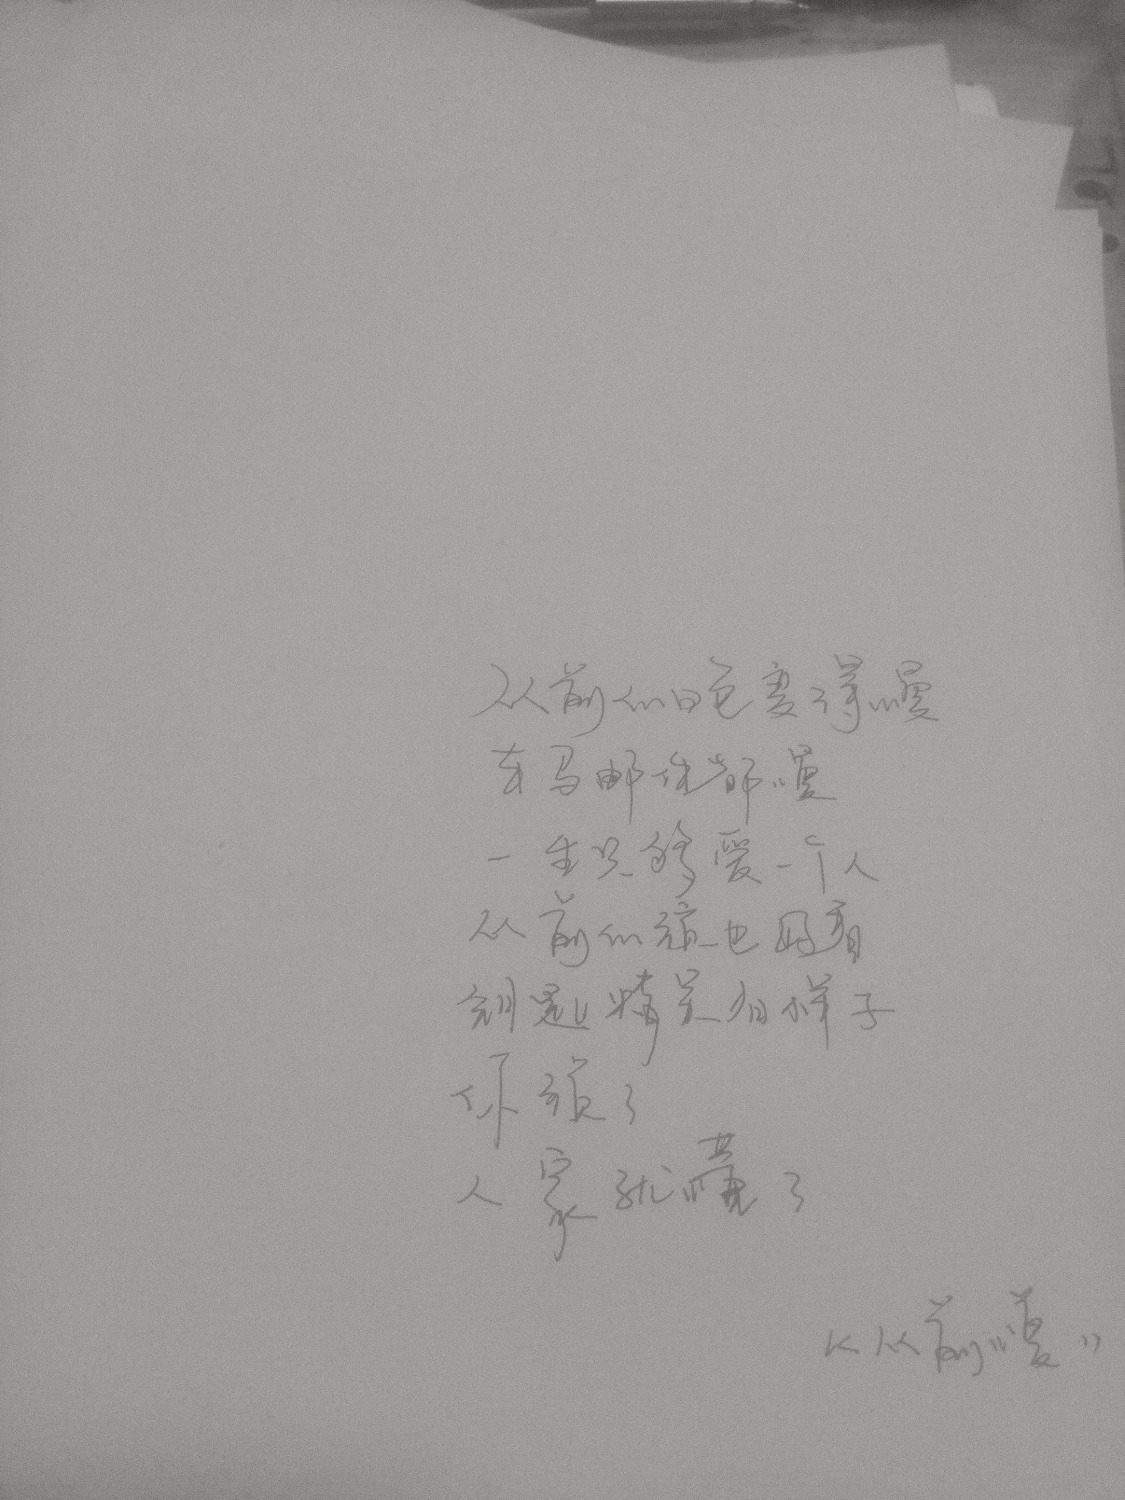 从前的日色变得慢
车马邮件都慢
一生只够爱一个人
从前的锁也好看
钥匙精美有样子
你锁了
人家就懂了
《从前慢》